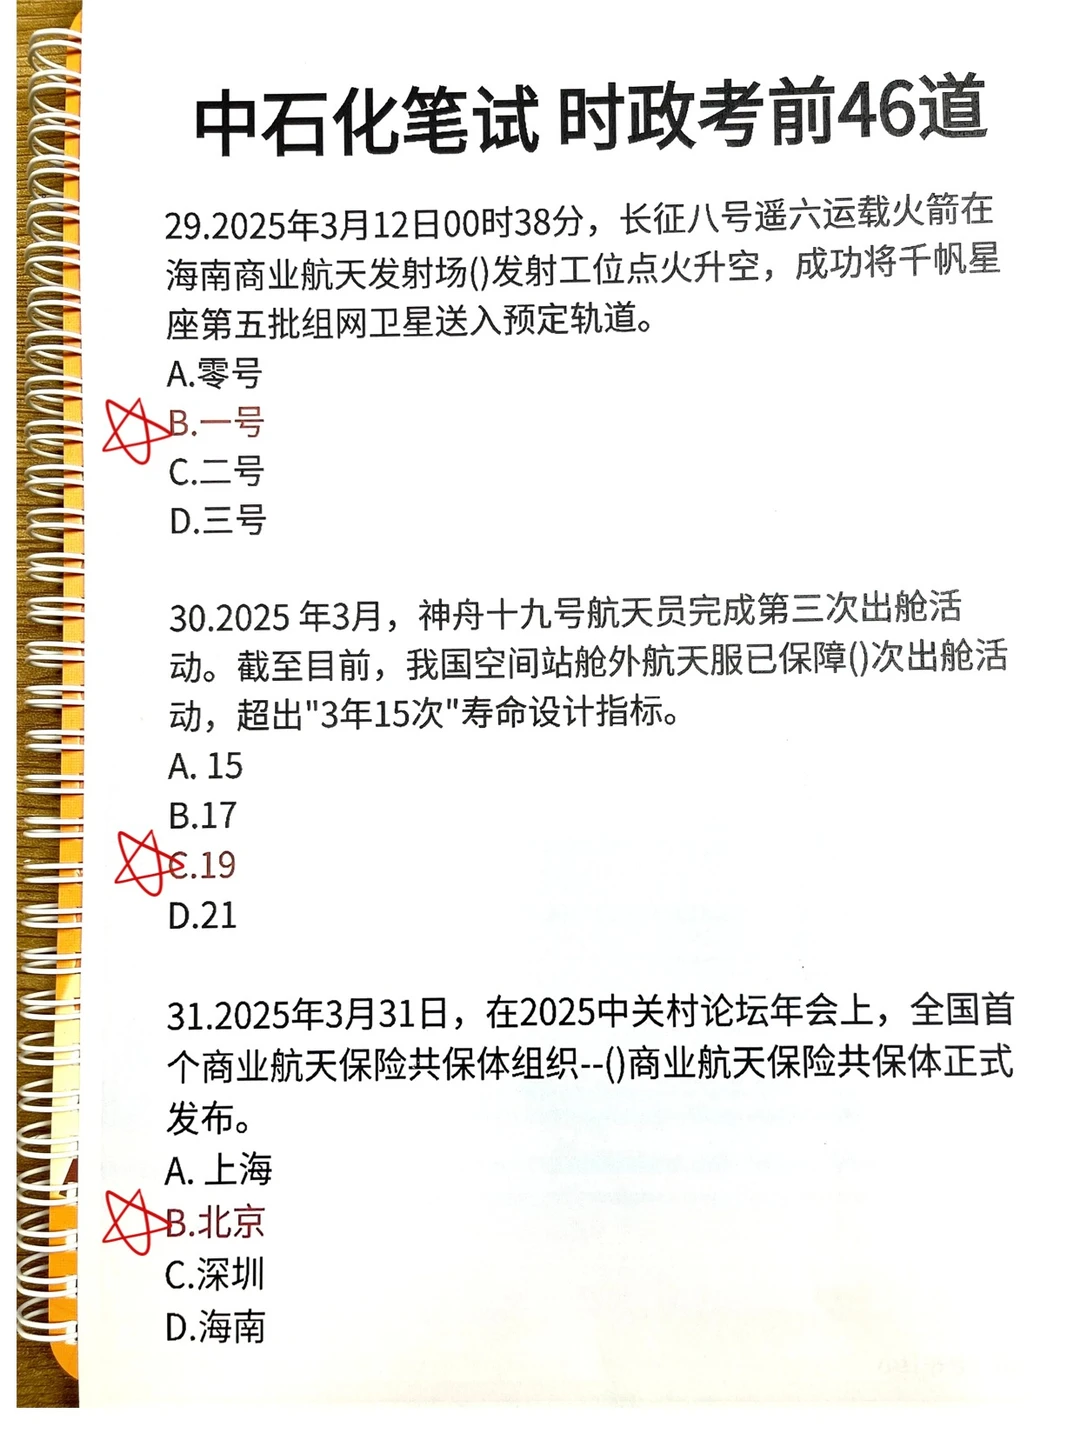 中石化笔试 时政考前46道
29.2025年3月12日00时38分，长征八号遥六运载火箭在
海南商业航天发射场()发射工位点火升空，成功将千帆星
座第五批组网卫星送入预定轨道。
A.零号
B.一号
C.二号
D.三号
30.2025 年3月，神舟十九号航天员完成第三次出舱活
动。截至目前，我国空间站舱外航天服已保障()次出舱活
动，超出"3年15次"寿命设计指标。
A. 15
B.17
C.19
D.21
31.2025年3月31日，在2025中关村论坛年会上，全国首
个商业航天保险共保体组织--()商业航天保险共保体正式
发布。
A. 上海
B.北京
C.深圳
D.海南